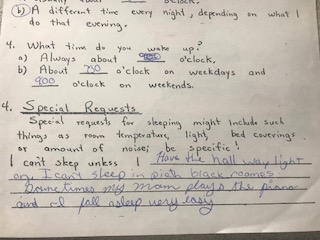 o'clock.
(b) A different time every night, depending on what I
do that evening.
4. What time do you wake up?
a) Always about o'clock.
b) About 730 o'clock on weekdays and
900 o'clock on weekends.
4. Special Requests
Special requests for sleeping might include such
things as room temperature, light, bed coverings
or amount of noise; be specific!
I can't sleep unless I Have the hall way light
on, I can't sleep in pich black roomes.
Sometimes my mom plays the piano
and I fall asleep very easy